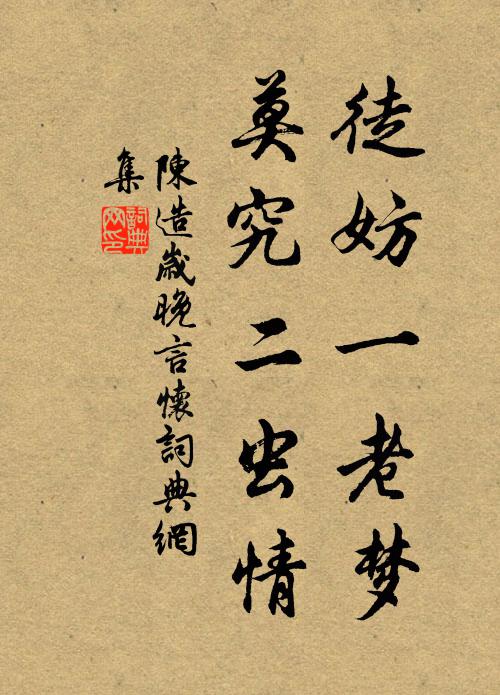 徒妨一老梦
莫究二虫情
陳造歲晚言懷詞典網
集
詞典
网印